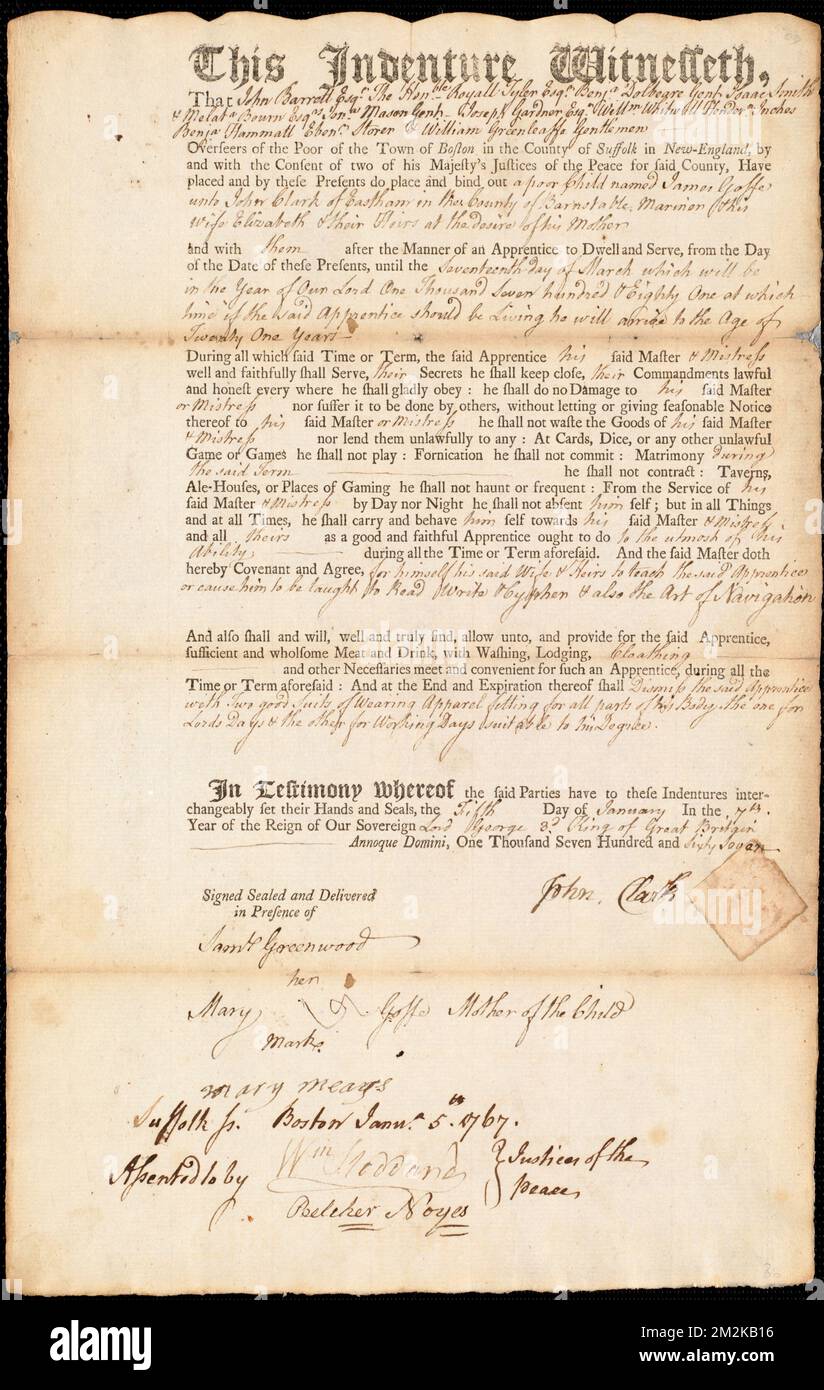 This Indenture Witnesseth,
That John Barrett Esqr. The Honble Royall Tyler Esqr. Benja. Dolbeare Gent. Isaac Smith
& Melata. Bourn Esqrs. Jons. Mason Gent. Joseph Gardner Esqr. Willm. Whitwell Hender'n Inches
Benja Hammatt Ebenr. Storer & William Greenleaffe Gentlemen
Overseers of the Poor of the Town of Boston in the County of Suffolk in New-England, by
and with the Consent of two of his Majesty's Justices of the Peace for said County, Have
placed and by these Presents do place and bind out a poor Child named James Goffe
unto John Clark of Eastham in the County of Barnstable, Mariner & his
Wife Elizabeth & their Heirs at the desire of his Mother
and with them after the Manner of an Apprentice to Dwell and Serve, from the Day
of the Date of these Presents, until the Seventeenth day of March which will be
in the Year of Our Lord One Thousand Seven hundred & Eighty One at which
time if the said Apprentice should be Living he will arrive to the Age of
Twenty One Years
During all which said Time or Term, the said Apprentice his said Master & Mistress
well and faithfully shall Serve, their Secrets he shall keep close, their Commandments lawful
and honest every where he shall gladly obey : he shall do no Damage to his said Master
or Mistress nor suffer it to be done by others, without letting or giving seasonable Notice
thereof to his said Master or Mistress he shall not waste the Goods of his said Master
& Mistress nor lend them unlawfully to any : At Cards, Dice, or any other unlawful
Game or Games he shall not play : Fornication he shall not commit : Matrimony during
the said Term he shall not contract : Taverns,
Ale-Houses, or Places of Gaming he shall not haunt or frequent : From the Service of his
said Master & Mistress by Day nor Night he shall not absent him self ; but in all Things
and at all Times, he shall carry and behave him self towards his said Master & Mistress
and all theirs as a good and faithful Apprentice ought to do to the utmost of his
Ability during all the Time or Term aforesaid. And the said Master doth
hereby Covenant and Agree, for himself his said Wife & Heirs to teach the said Apprentice
or cause him to be taught to Read Write & Cypher & also the Art of Navigation
And also shall and will, well and truly find, allow unto, and provide for the said Apprentice,
sufficient and wholsome Meat and Drink, with Washing, Lodging, Cloathing
and other Necessaries meet and convenient for such an Apprentice, during all the
Time or Term aforesaid : And at the End and Expiration thereof shall Dismiss the said Apprentice
with Two good Suits of Wearing Apparel fitting for all parts of his Body the one for
Lords Days & the other for Working Days suitable to his Degree.
In Testimony whereof the said Parties have to these Indentures inter-
changeably set their Hands and Seals, the Fifth Day of January In the 7th.
Year of the Reign of Our Sovereign Lord George 3d. King of Great Britain
Annoque Domini, One Thousand Seven Hundred and Sixty Seven
Signed Sealed and Delivered
in Presence of
John Clark
Saml. Greenwood
her
Mary Goffe Mother of the Child
Mark
mary means
Suffolk ss. Boston Janua. 5th. 1767.
Assented to by Wm Stoddard } Justices of the
Belcher Noyes Peace
alamy
Image ID: 2M2KB16
www.alamy.com